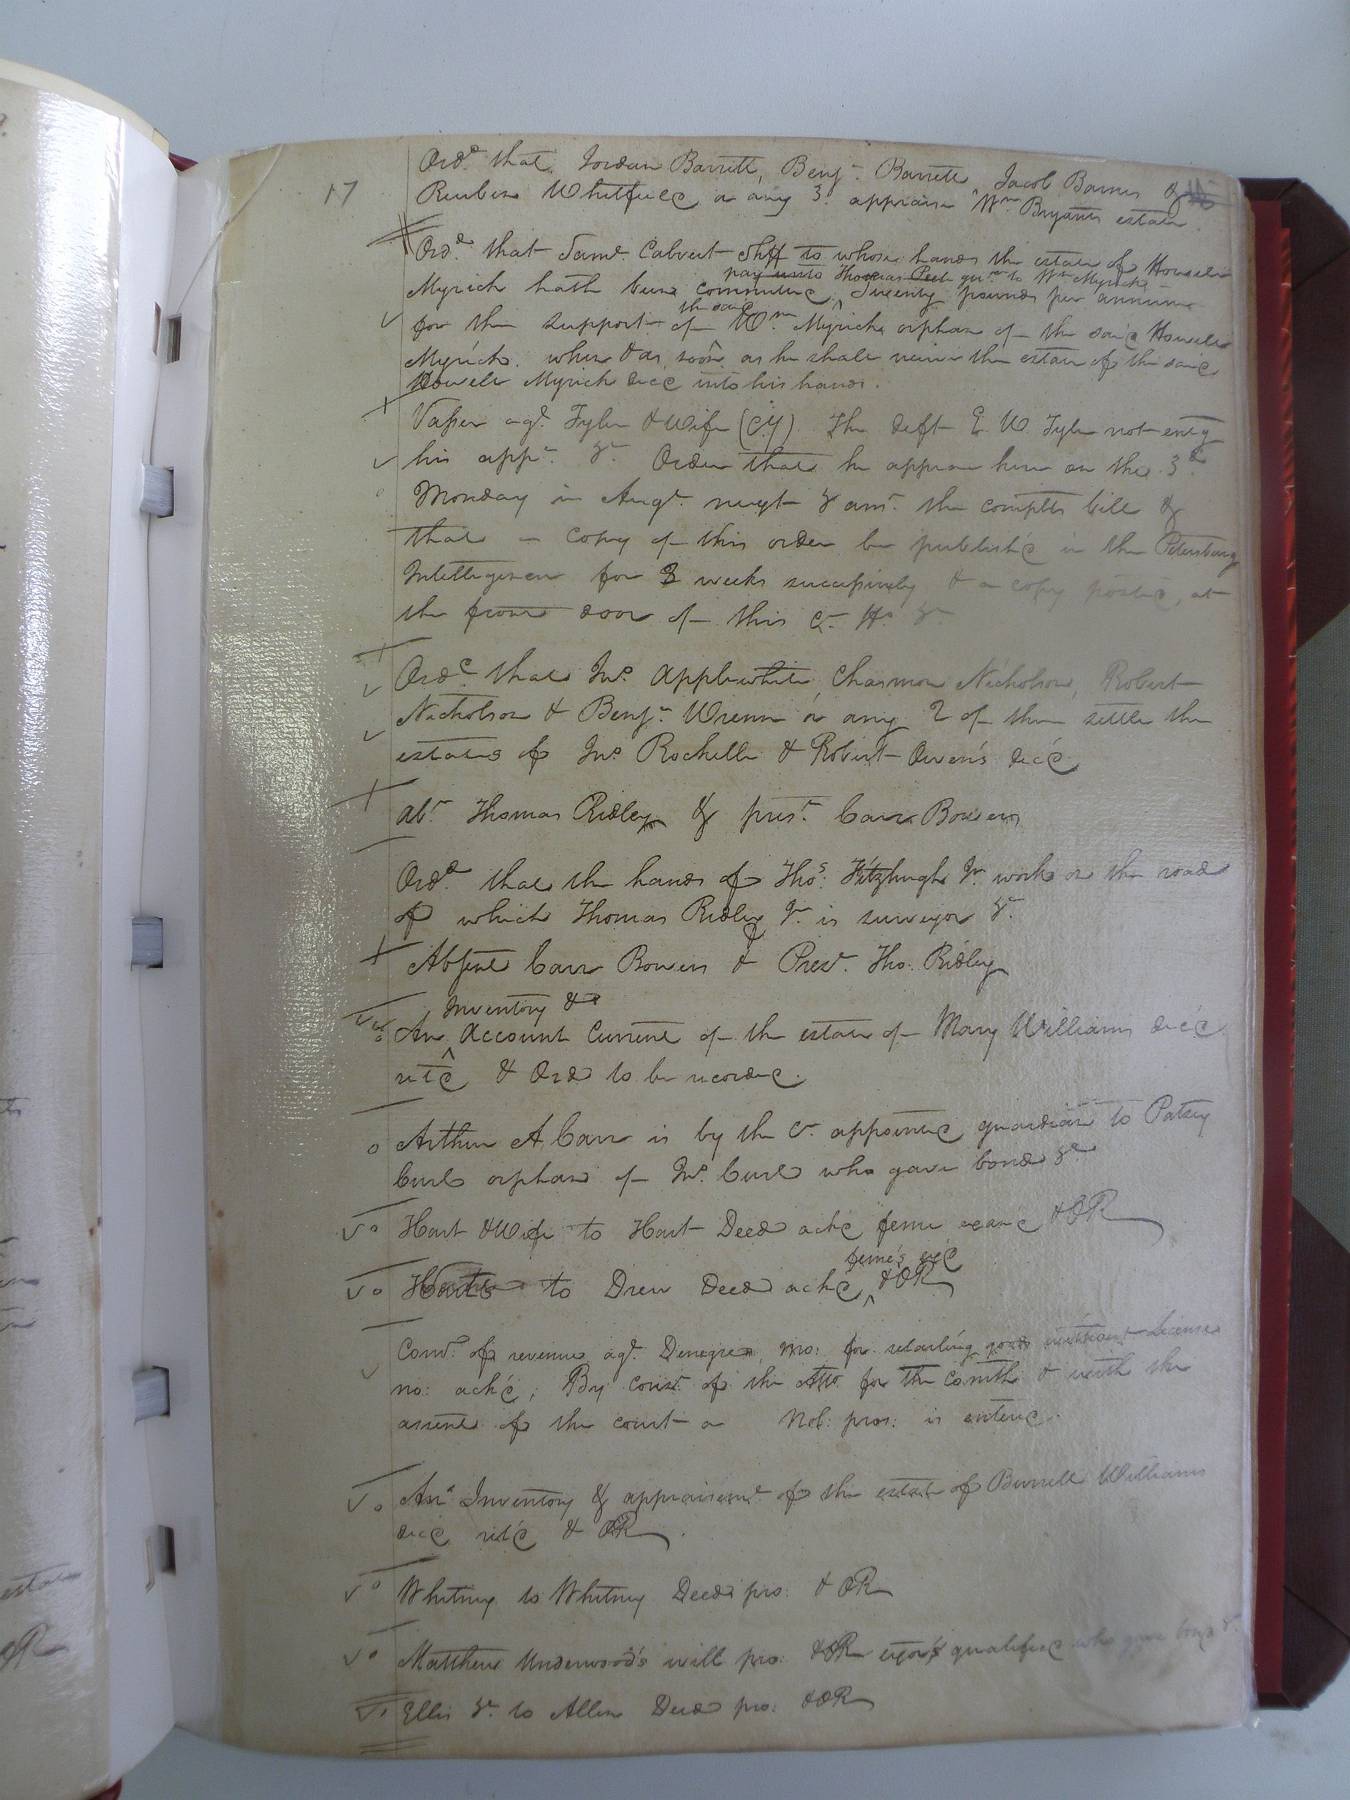 17
Ord.d that Jordan Barrett, Benj.n Barrett, Jacob Barnes &
Reuben Whitfield or any 3 appraise Wm Bryants estate.
Ord.d that Saml. Calvert Shff to whose hands the estate of Howell
pay unto Thomas Peete gu.n to Wm Myrick
Myrick hath been committed, Twenty pounds per annum
the said
for the support of Wm. Myrick orphan of the said Howell
Myrick, when & as soon as he shall receive the estate of the said
Howell Myrick decd into his hands.
Vasser agt. Tyler & Wife (Cy) The deft E. W. Tyler not entg
his appe. &c. Order that he appear here on the 3d
Monday in Augt. next & ansr. the complts bill &
that a copy of this order be publish'd in the Petersburg
Intelligencer for 8 weeks successively & a copy posted, at
the front door of this Ct. Ho. &c
Ord.d that Jno. Applewhite, Charmon Nicholson, Robert
Nicholson & Benj.n Wrenn or any 2 of them settle the
estates of Jno. Rochelle & Robert Owen's dec'd
abt. Thomas Ridley & prest. Carr Bowers
Ord.d that the hands of Thos. Fitzhugh Jr. work on the road
of which Thomas Ridley Jr. is surveyor &c.
Absent Carr Bowers & Prest. Tho. Ridley
Inventory &c
An Account Current of the estate of Mary Williams dec'd
retd & Ord to be recorded.
Arthur A Carr is by the Ct. appointed guardian to Patsey
Curl orphan of Jno. Curl who gave bond &c
Hart & Wife to Hart Deed ackd feme exand & OR
feme's exd
Harts to Drew Deed ackd & OR
Comt. of revenue agt. Denegre, mo: for retailing goods without License
no: ack'd; By const of the Atto for the Comth & with the
assent of the court a Nol: pros: is entered.
An Inventory & appraisemt. of the estate of Burrell Williams
decd ret'd & OR
Whitney to Whitney Deed pro: & OR
Matthew Underwood's will pro: & OR exor's qualified who gave bond &c.
Ellis &c. to Allen Deed pro: & OR